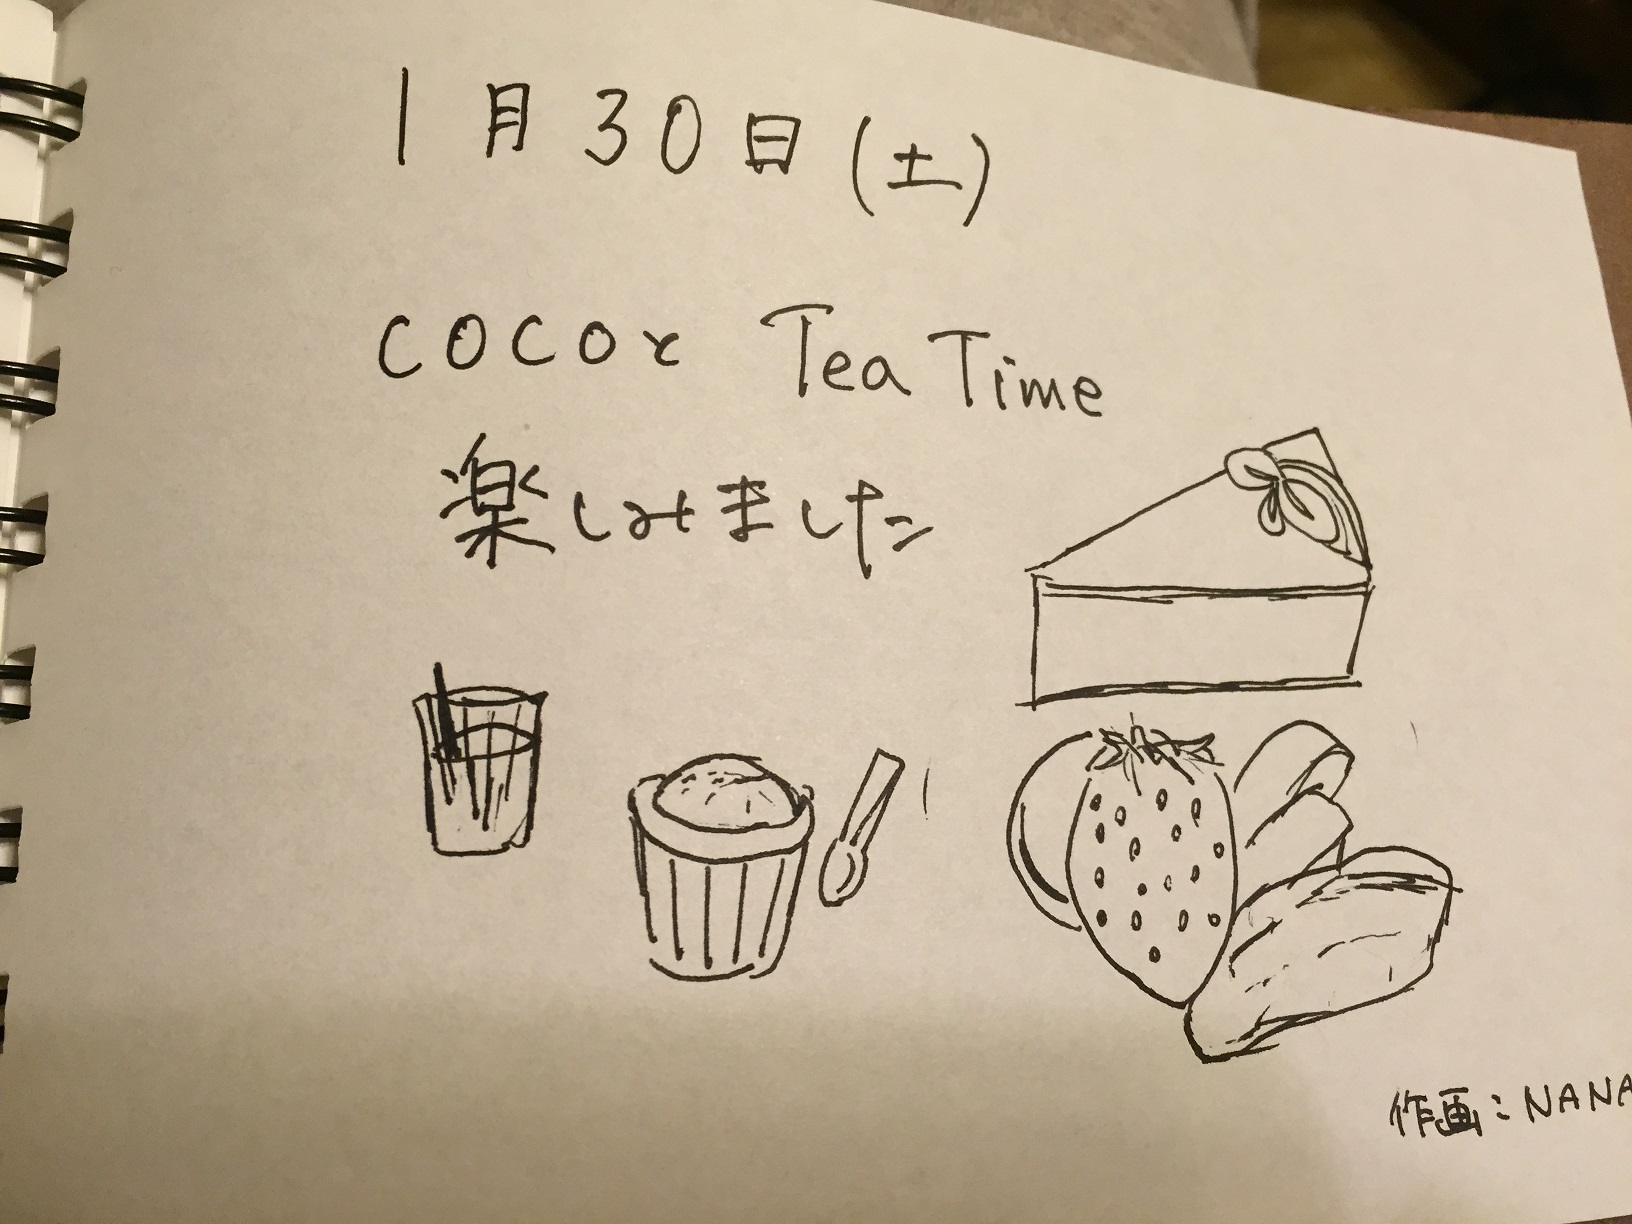 1月30日(土)
COCOと Tea Time
楽しみました
作画:NANA